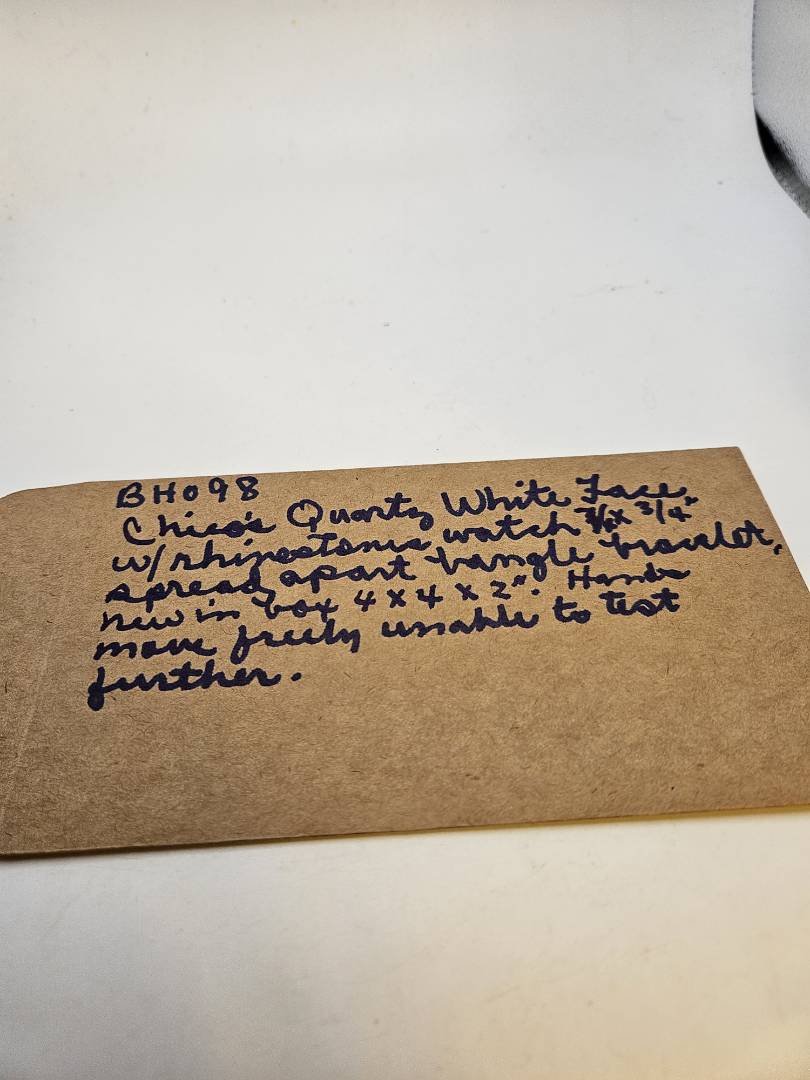 BH098
Chico's Quartz White Face
w/rhinestones watch x 3/4"
spread apart bangle bracelet,
new in box 4 x 4 x 2". Hands
move freely unable to test
further.